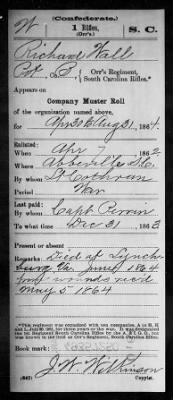 W
(Confederate.)
1 Rifles,
(Orr's.)
S. C.
Richard Wall
Pvt, B, Orr's Regiment,
South Carolina Rifles.*
Appears on
Company Muster Roll
of the organization named above,
for Apr 30 to Aug 31, 1864.
Enlisted:
When Apr 7, 1862
Where Abbeville S.C.
By whom Lt. Cothran
Period War
Last paid:
By whom Capt Perrin
To what time Dec 31, 1863
Present or absent
Remarks: Died at Lynch-
burg Va June 1864
from wounds rec'd
May 5 1864
Book mark:
J. W. Wilkinson
(642) Copyist.